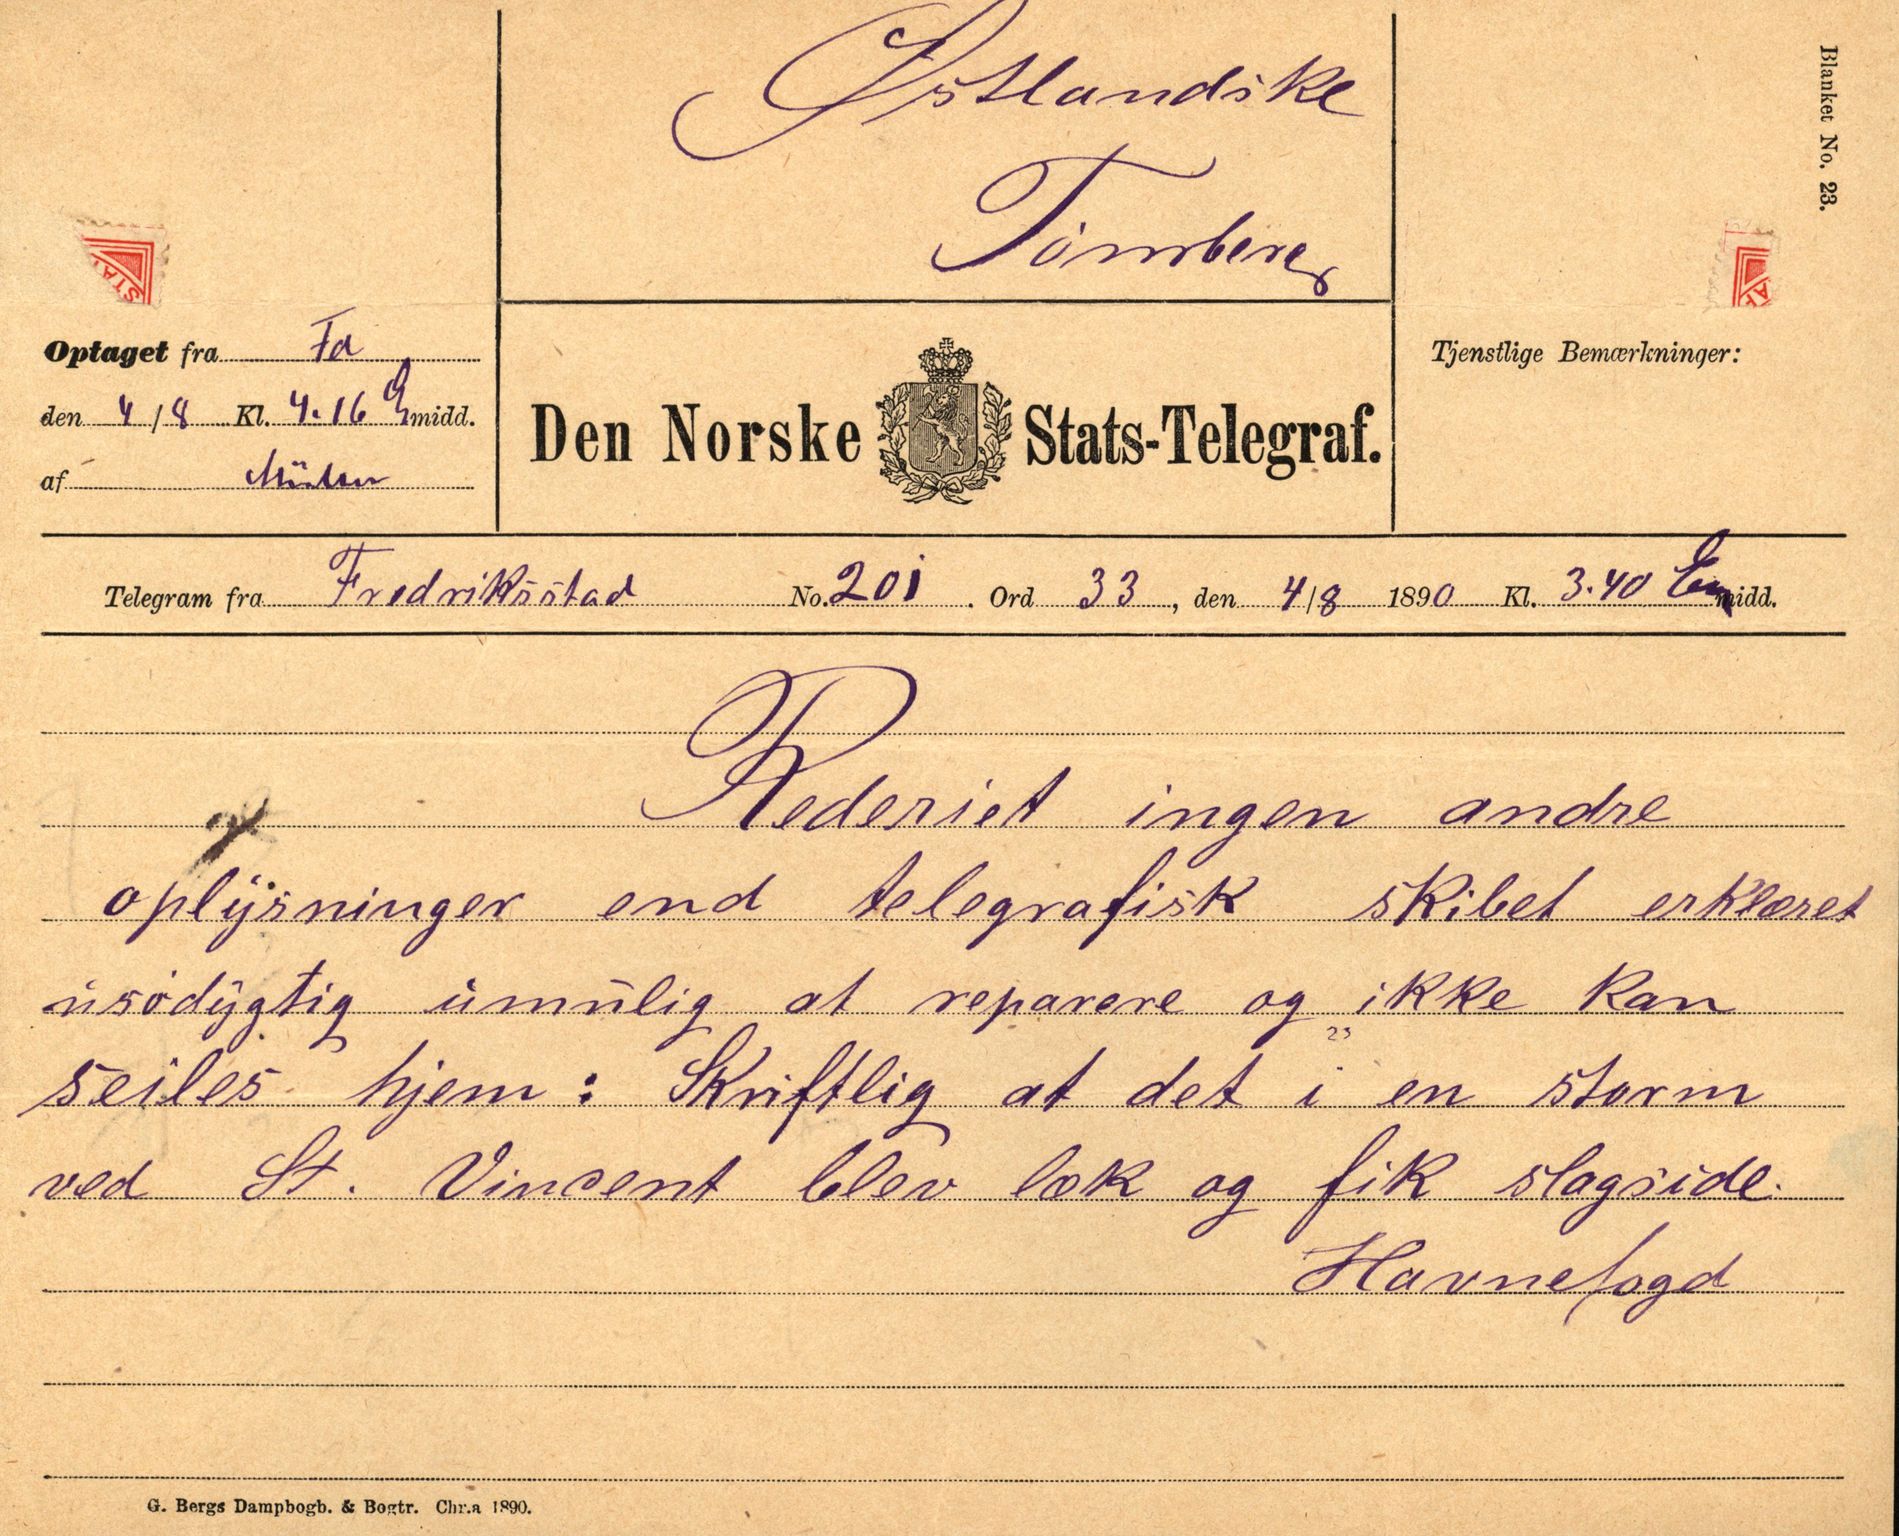 Blanket No. 23.
Østlandske
Tønsberg
Optaget fra Fd
den 4/8 Kl. 4.16 Emidd.
af
Den Norske Stats-Telegraf.
Tjenstlige Bemærkninger:
Telegram fra Fredriksstad No. 201. Ord 33, den 4/8 1890 Kl. 3.40 Emidd.
Rederiet ingen andre
oplysninger end telegrafisk skibet erklæret
usødygtig umulig at reparere og ikke kan
seiles hjem: Skriftlig at det i en storm
ved St. Vincent blev læk og fik slagside.
Havnefogd
G. Bergs Dampbogb. & Bogtr. Chr.a 1890.